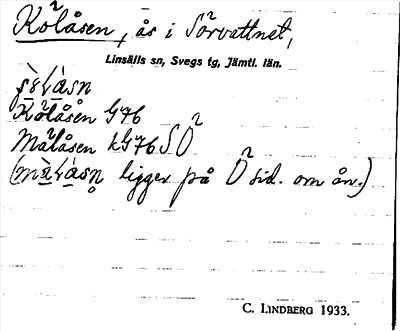 Kölåsen, ås i Sörvattnet,
Linsälls sn, Svegs tg, Jämtl. län.
Kölåsen G76
Målåsen kG76 SO
ligger på Ö sid. om ån.)
C. LINDBERG 1933.